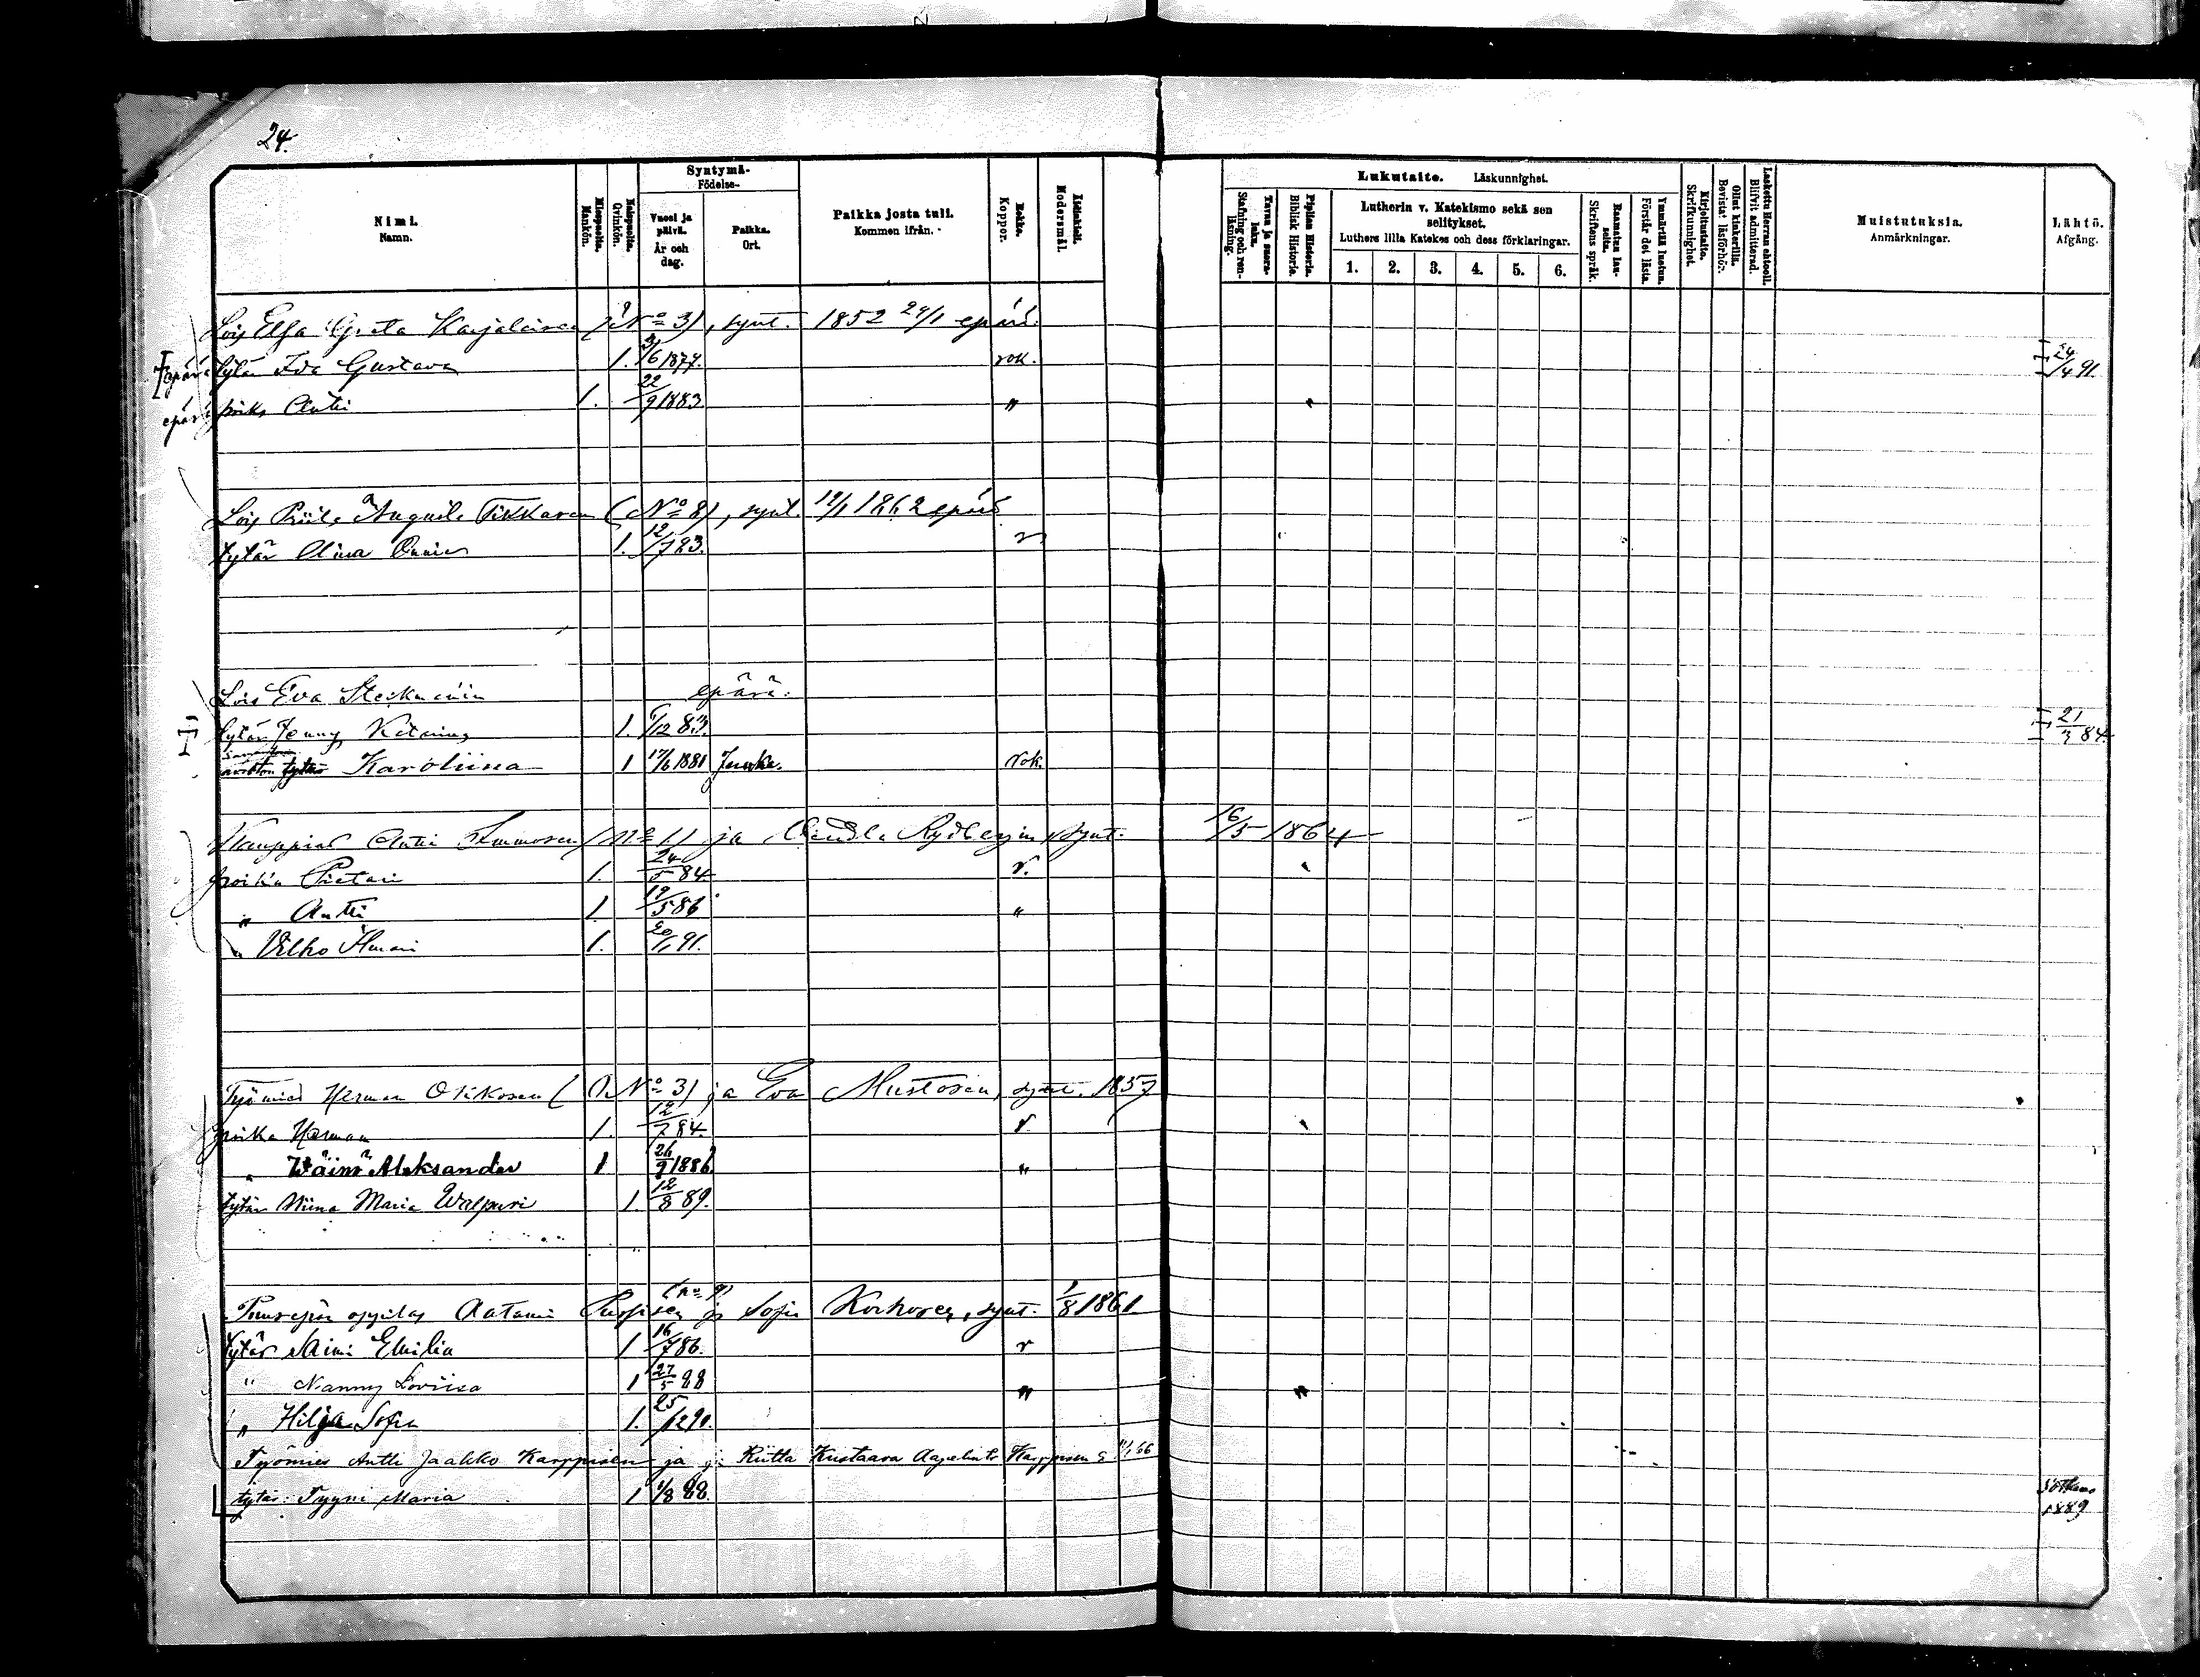 24.
Nimi.
Namn.
Miespuolia.
Mankön.
Naispuolia.
Qvinkön.
Syntymä-
Födelse-
Vuosi ja päivä.
År och dag.
Paikka.
Ort.
Paikka josta tuli.
Kommen ifrån.
Rokko.
Koppor.
Äidinkieli.
Modersmål.
Lukutaito. Läskunnighet.
Tavaa ja suora-luku.
Stafning och ren-läsning.
Piplian Historia.
Biblisk Historia.
Lutherin v. Katekismo sekä sen selitykset.
Luthers lilla Katekes och dess förklaringar.
1. 2. 3. 4. 5. 6.
Raamatun lauseita.
Skriftens språk.
Ymmärtää luetun.
Förstår det lästa.
Kirjoitustaito.
Skrifkunnighet.
Ollut kinkerillä.
Bevistat läsförhör.
Laskettu Herran ehtoolle.
Blifvit admitterad.
Muistutuksia.
Anmärkningar.
Lähtö.
Afgång.
Lois Elsa Greta Karjalainen (No 3), synt. 1852 24/1 epäri.
tytär Ida Gustava 1. 3/6 1877. rok. 24/4 91.
epäri poika Antti 1. 22/9 1883. "
Lois Priita Augusta Tikkanen (No 8), synt. 12/1 1862 epäri
tytär Alina 1. 12/7 83. r
Lois Eva epäri.
tytär Jenny Katarina 1. 1/12 83. 21/3 84.
tytär Karoliina 1 17/6 1881 rok.
Kauppias Antti Simmosen (No 1) ja Rydbergin synt. 16/5 1864
poika Pietari 1. 24/5 84 r.
" Antti 1. 19/5 86 "
" Vilho Ilmari 1. 20/1 91.
Työmies Herman Okkosen (No 3) ja Eva Mustosen, synt. 1857
poika Herman 1. 12/7 84. r.
" Wäinö Aleksander 1 26/9 1886 "
tytär Miina Maria Walpuri 1. 12/8 89.
(No 9)
Aatami ja Sofia Korhosen, synt. 1/8 1861
tytär Aini Emilia 1 16/7 86. r
" Nanny Loviisa 1 27/5 88 "
" Hilja Sofia 1. 25/12 90.
Työmies Antti Jaakko Karppisen ja Riitta Kustaava Karppisen
tytär: Tyyni Maria 1 1/8 88. Sotkamo
1889